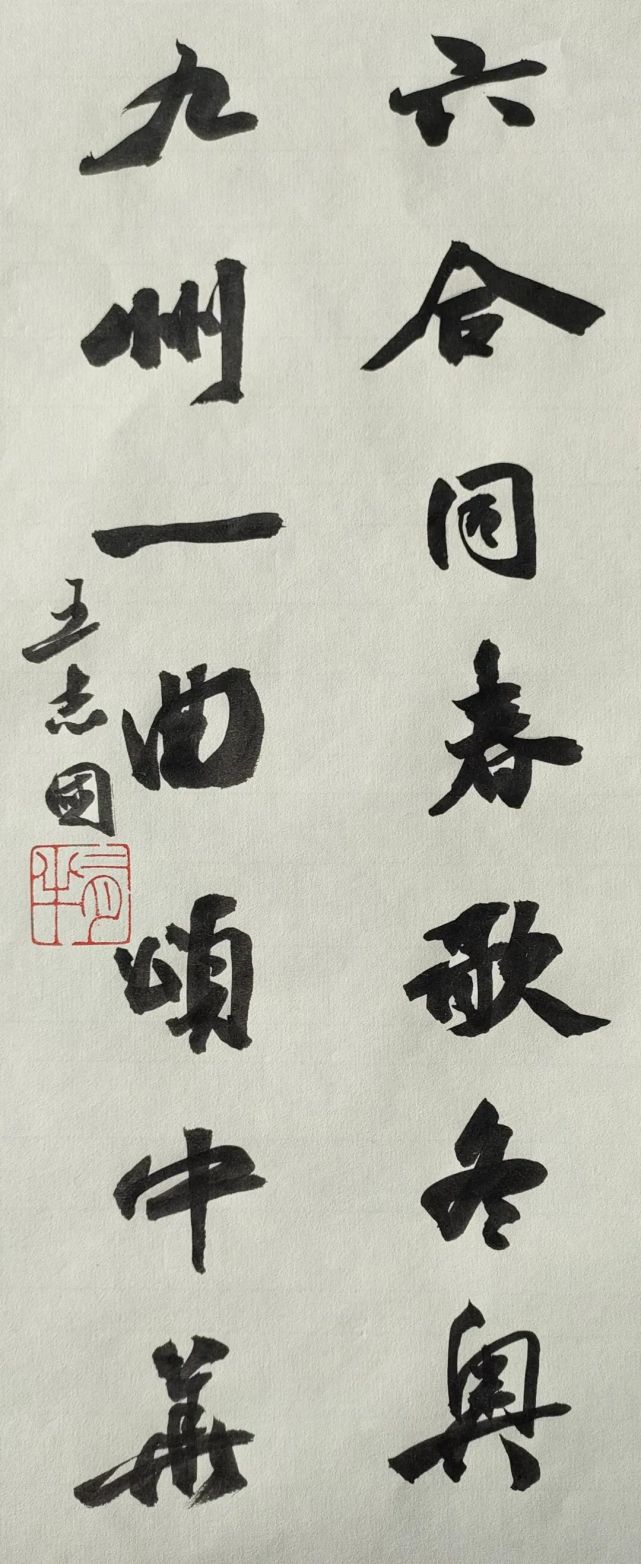 六合同春歌冬奥
九州一曲頌中華
王志國